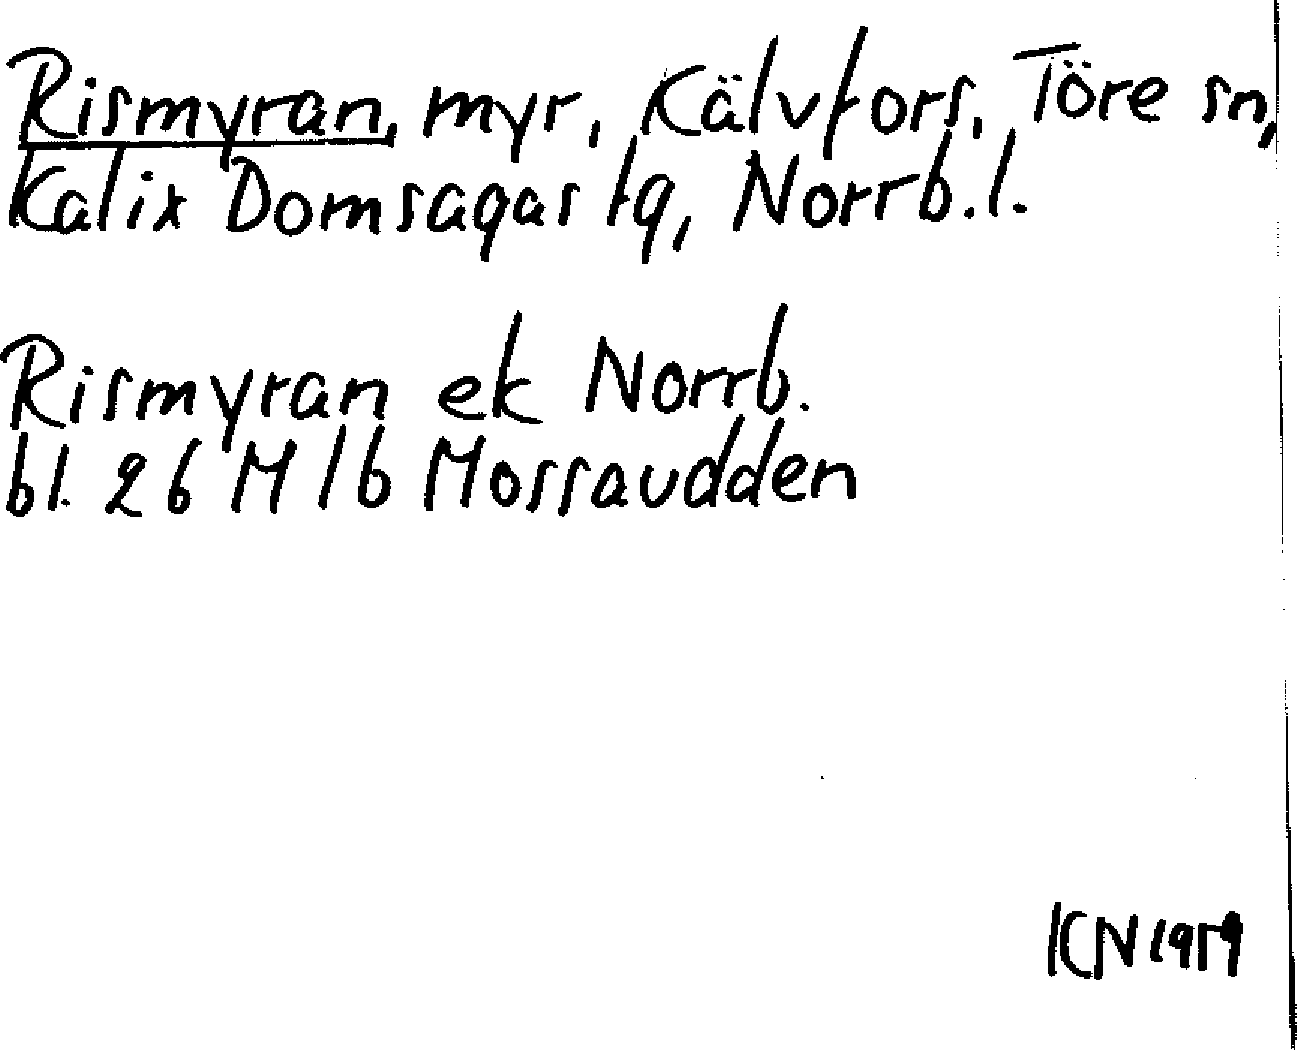 Rismyran, myr, Kälvfors, Töre sn,
Kalix Domsagas tg, Norrb. l.
Rismyran ek Norrb.
bl. 26 M 1b Mossaudden
KN 1959